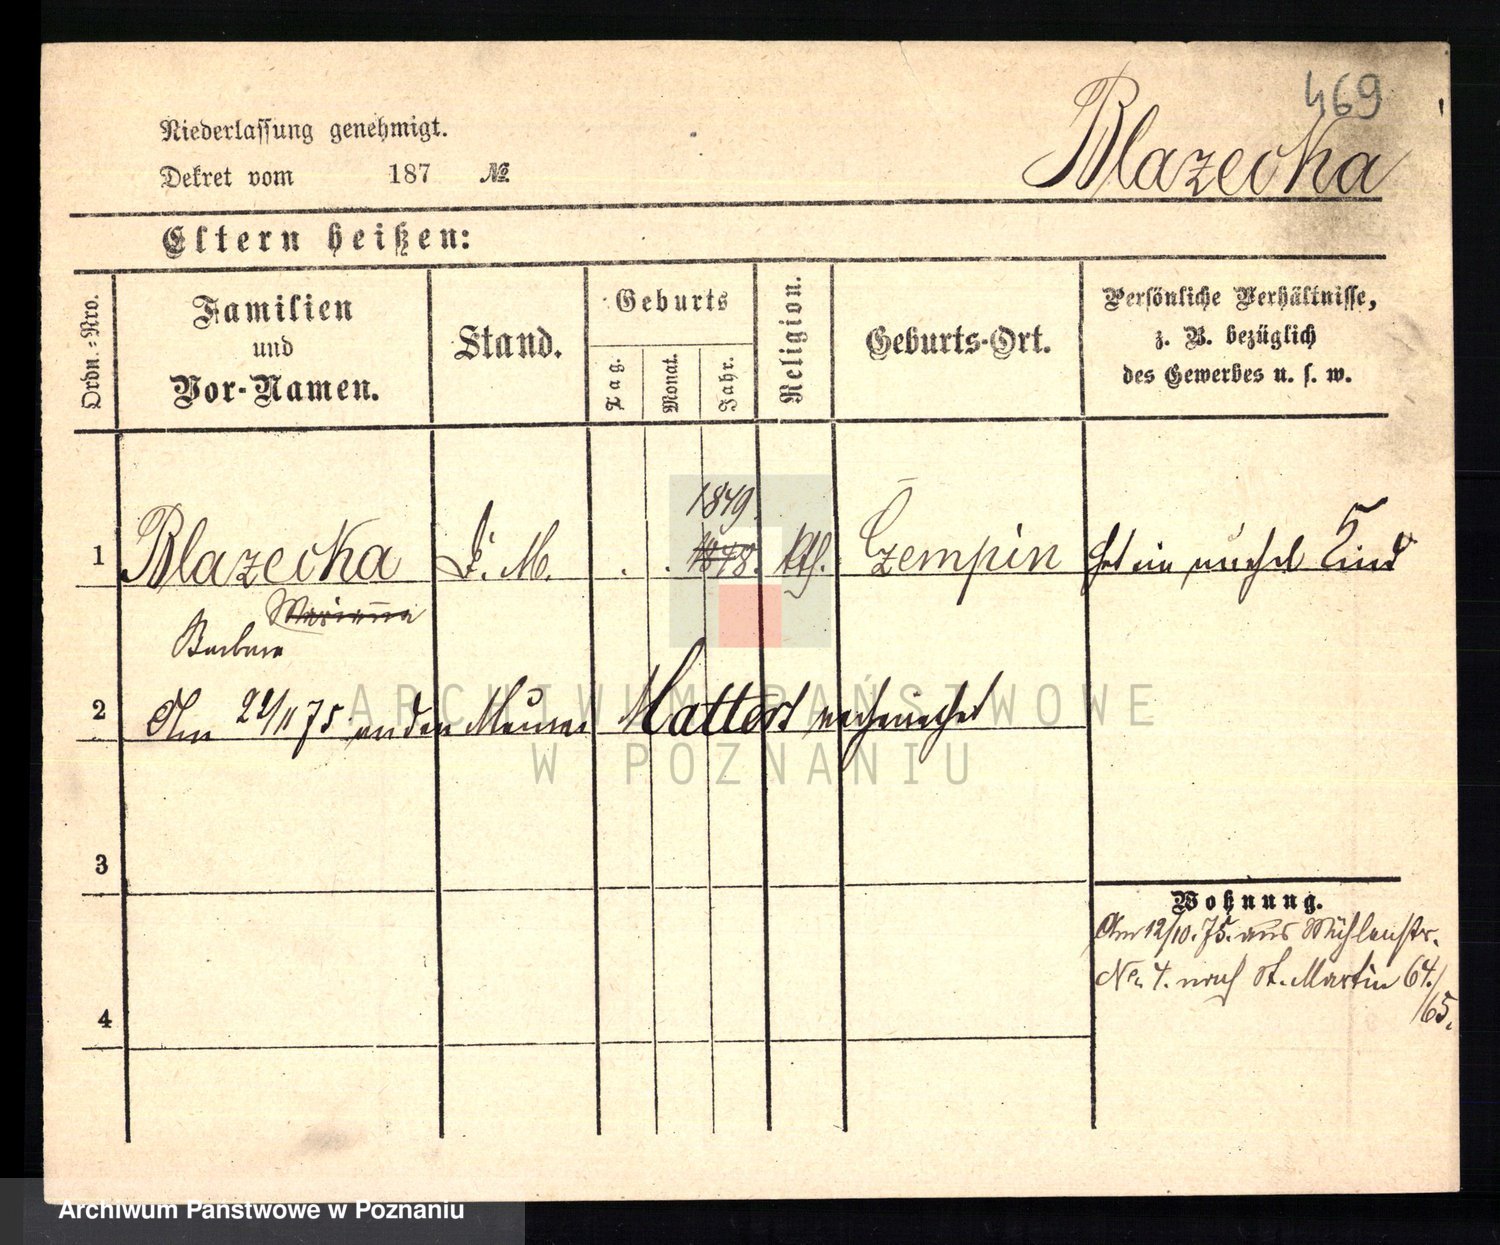 469
Niederlassung genehmigt.
Dekret vom 187 №
Blazecka
Eltern heißen:
Ordn.-Nro.
Familien
und
Vor-Namen.
Stand.
Geburts
Tag.
Monat.
Jahr.
Religion.
Geburts-Ort.
Persönliche Verhältnisse,
z. B. bezüglich
des Gewerbes u. s. w.
1849.
1 Blazecka D. M. . . 1848. kth. Czempin hat ein unehel Kind
Marianna
Barbara
2 Am 22/11 75 an den Maurer Mattert verheirathet
3
4
Wohnung.
Am 12/10. 75. aus Mühlenstr.
No. 4. nach St. Martin 64./
65.
ARCHIWUM PAŃSTWOWE
W POZNANIU
Archiwum Państwowe w Poznaniu